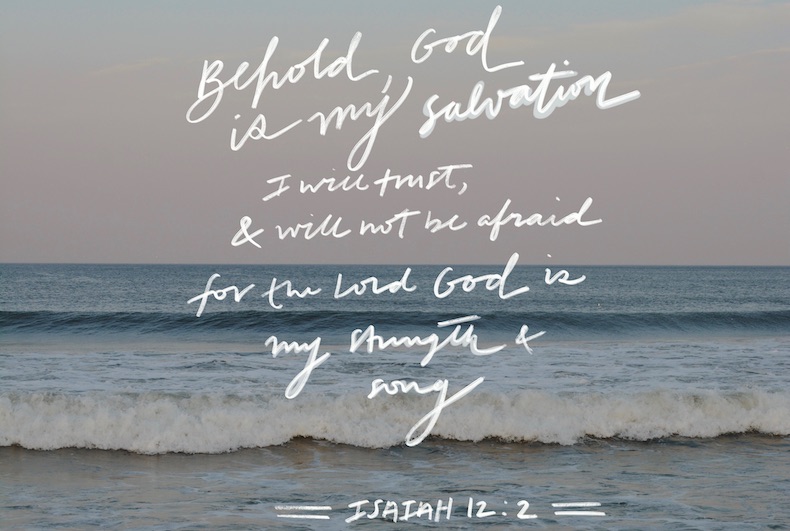 Behold, God
is my salvation
I will trust,
& will not be afraid
for the Lord God is
my strength &
song
ISAIAH 12:2